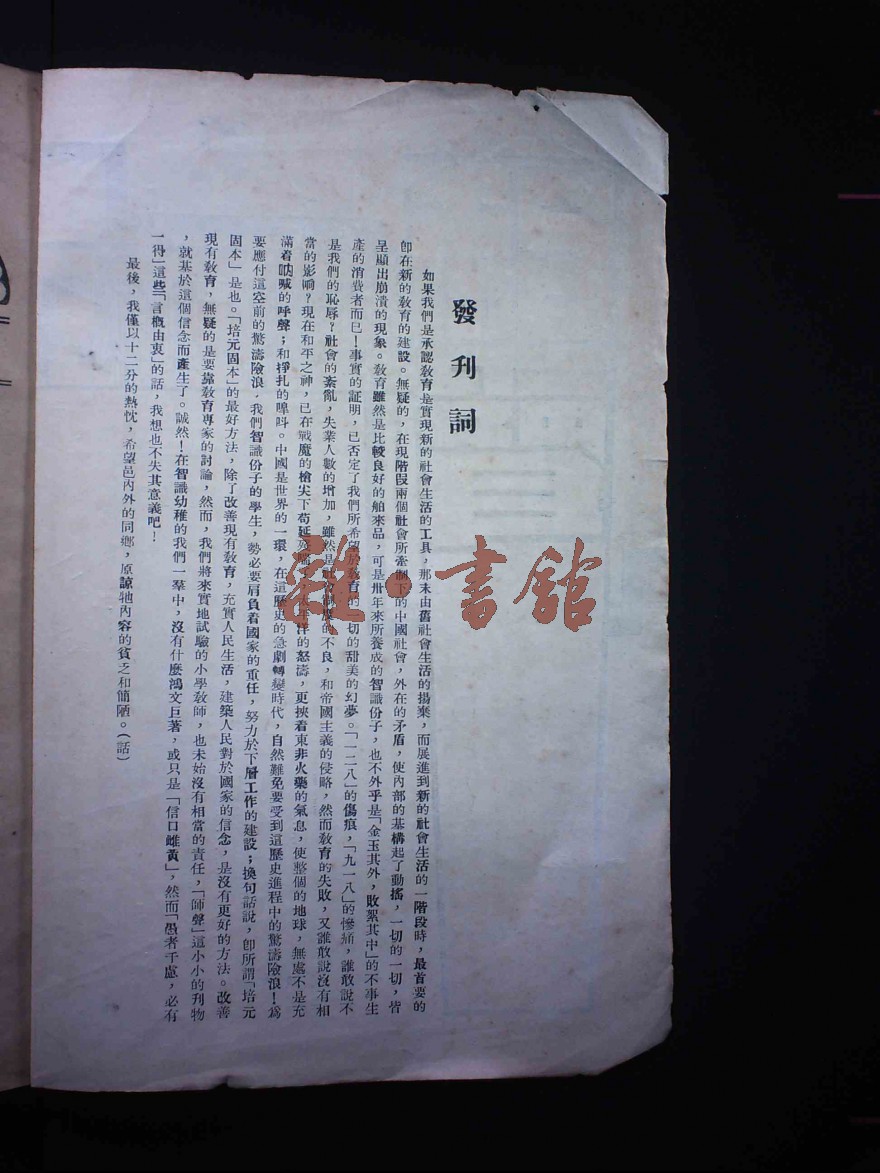 發刊詞
如果我們是承認教育是實現新的社會生活的工具，那末由舊社會生活的揚棄，而展進到新的社會生活的一階段時，最首要的
卽在新的教育的建設。無疑的，在現階段兩個社會所牽制下的中國社會，外在的矛盾，使內部的基構起了動搖，一切的一切，皆
呈顯出崩潰的現象。教育雖然是比較良好的舶來品，可是卅年來所養成的智識份子，也不外乎是「金玉其外，敗絮其中」的不事生
產的消費者而已！事實的証明，已否定了我們所希望於教育的一切的甜美的幻夢。「一二八」的傷痕，「九一八」的慘痛，誰敢說不
是我們的恥辱？社會的紊亂，失業人數的增加，雖然是社會制度的不良，和帝國主義的侵略，然而教育的失敗，又誰敢說沒有相
當的影响？現在和平之神，已在戰魔的槍尖下苟延殘喘，太平洋的怒濤，更挾着東非火藥的氣息，使整個的地球，無處不是充
滿着吶喊的呼聲；和掙扎的嘷呌。中國是世界的一環，在這歷史的急劇轉變時代，自然難免要受到這歷史進程中的驚濤險浪！爲
要應付這空前的驚濤險浪，我們智識份子的學生，勢必要肩負着國家的重任，努力於下層工作的建設；換句話說，卽所謂「培元
固本」是也。「培元固本」的最好方法，除了改善現有教育，充實人民生活，建築人民對於國家的信念，是沒有更好的方法。改善
現有教育，無疑的是要靠教育專家的討論，然而，我們將來實地試驗的小學教師，也未始沒有相當的責任，「師聲」這小小的刊物
，就基於這個信念而產生了。誠然！在智識幼稚的我們一羣中，沒有什麼鴻文巨著，或只是「信口雌黃」，然而「愚者千慮，必有
一得」這些「言槪由衷」的話，我想也不失其意義吧！
最後，我僅以十二分的熱忱，希望邑內外的同鄉，原諒牠內容的貧乏和簡陋。（話）
雜·書館